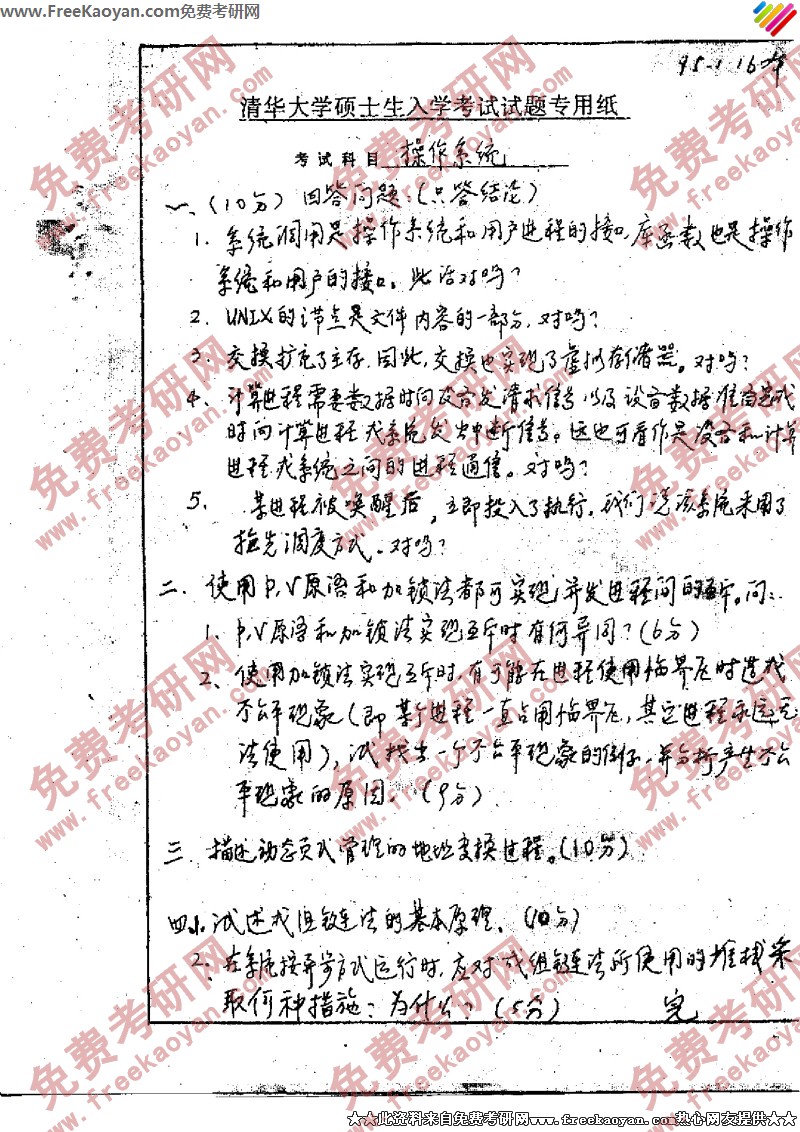 www.FreeKaoyan.com免费考研网
95.1.16
清华大学硕士生入学考试试题专用纸
考试科目 操作系统
一、(10分) 回答问题:(只答结论)
1. 系统调用是操作系统和用户进程的接口,库函数也是操作
系统和用户的接口。此话对吗?
2. UNIX的i节点是文件内容的一部分,对吗?
3. 交换扩充了主存,因此,交换也实现了虚拟存储器。对吗?
4. 计算进程需要数据时向设备发请求信号以及设备数据准备完成
时向计算进程或系统发出中断信号。这也可看作是设备和计算
进程或系统之间的进程通信。对吗?
5. 某进程被唤醒后,立即投入了执行,我们说该系统采用了
抢先调度方式。对吗?
二、使用P,V原语和加锁法都可实现并发进程间的互斥。问:
1、P,V原语和加锁法实现互斥时有何异同?(6分)
2、使用加锁法实现互斥时,有可能在进程使用临界区时造成
不公平现象(即某个进程一直占用临界区,其它进程永远无
法使用),试找出一个不公平现象的例子,并分析产生不公
平现象的原因。(9分)
三、描述动态页式管理的地址变换过程。(10分)
四、1、试述成组链法的基本原理。(10分)
2、在系统按异步方式运行时,应对成组链法所使用的堆栈采
取何种措施?为什么?(5分) 完
★★此资料来自免费考研网www.freekaoyan.com热心网友提供★★